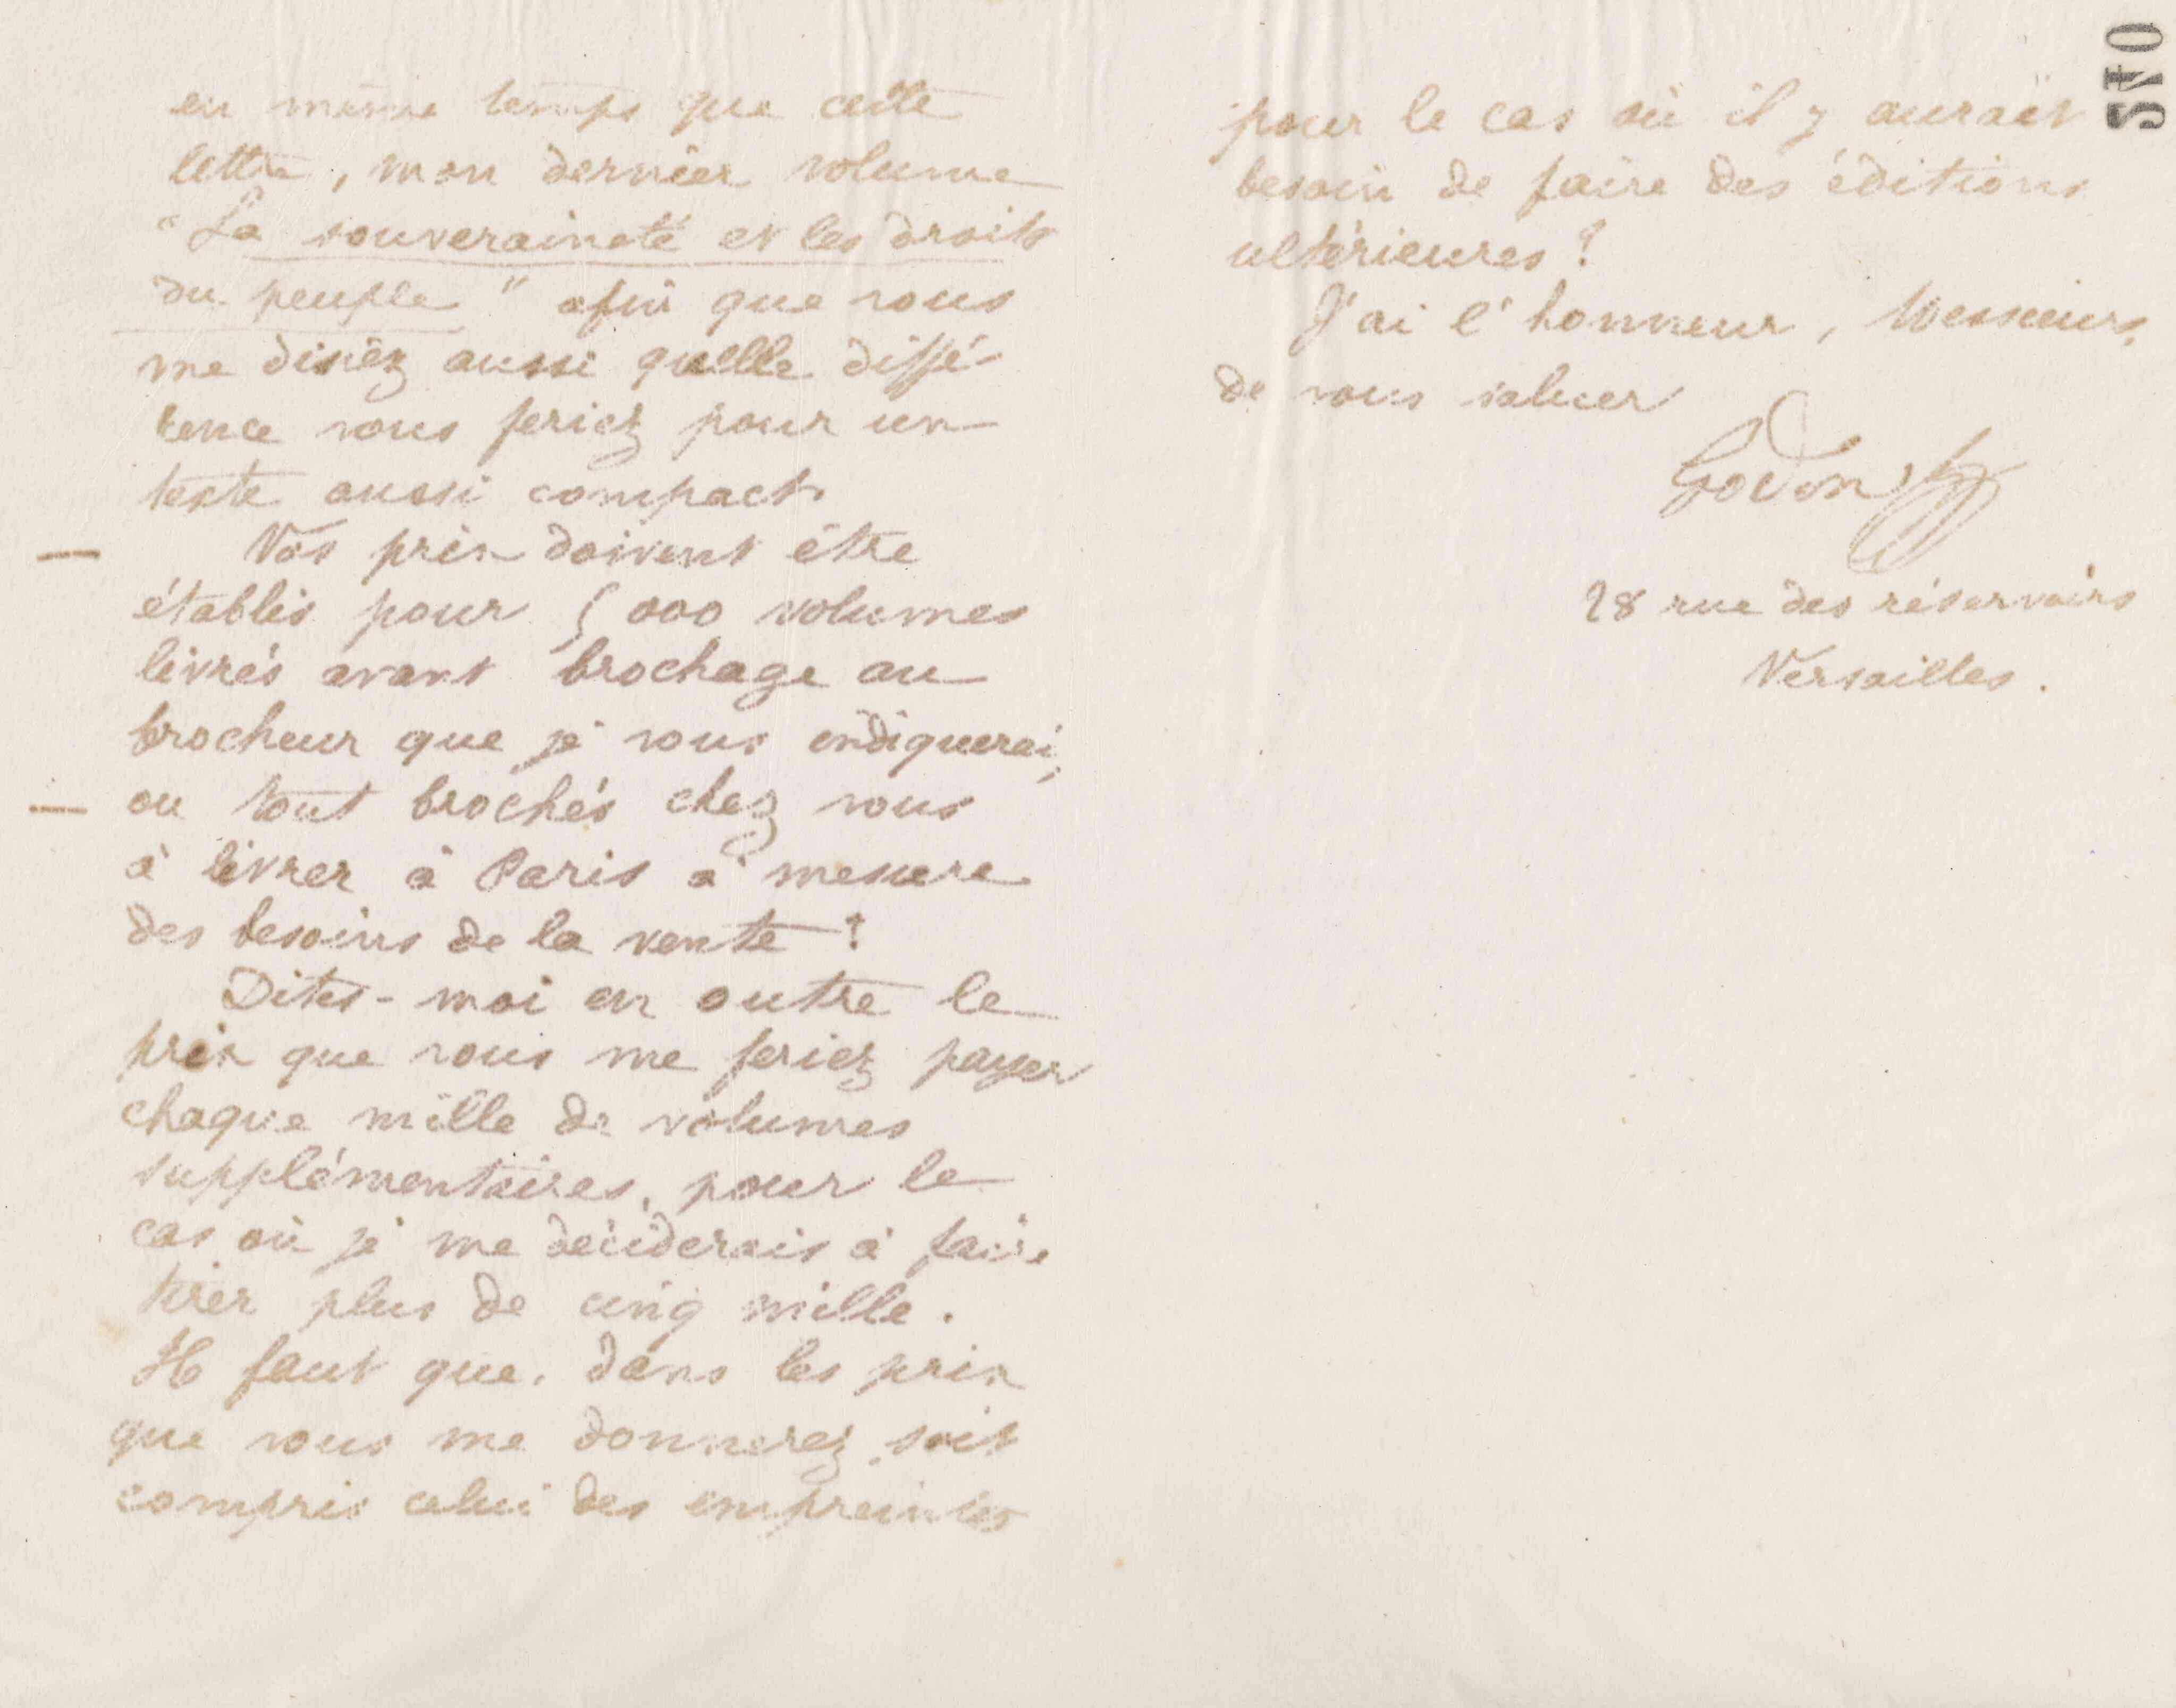 en même temps que cette
lettre, mon dernier volume
"La souveraineté et les droits
du peuple" afin que vous
me disiez aussi quelle diffé-
rence vous feriez pour un
texte aussi compact.
Vos prix doivent être
établis pour 5 000 volumes
livrés avant brochage au
brocheur que je vous indiquerai,
ou tout brochés chez vous
à livrer à Paris à mesure
des besoins de la vente ?
Dites-moi en outre le
prix que vous me feriez payer
chaque mille de volumes
supplémentaires, pour le
cas où je me déciderais à faire
tirer plus de cinq mille.
Il faut que, dans les prix
que vous me donnerez, soit
compris celui des empreintes
045
pour le cas où il y aurait
besoin de faire des éditions
ultérieures ?
J'ai l'honneur, Messieurs,
de vous saluer
Godin
28 rue des réservoirs
Versailles.